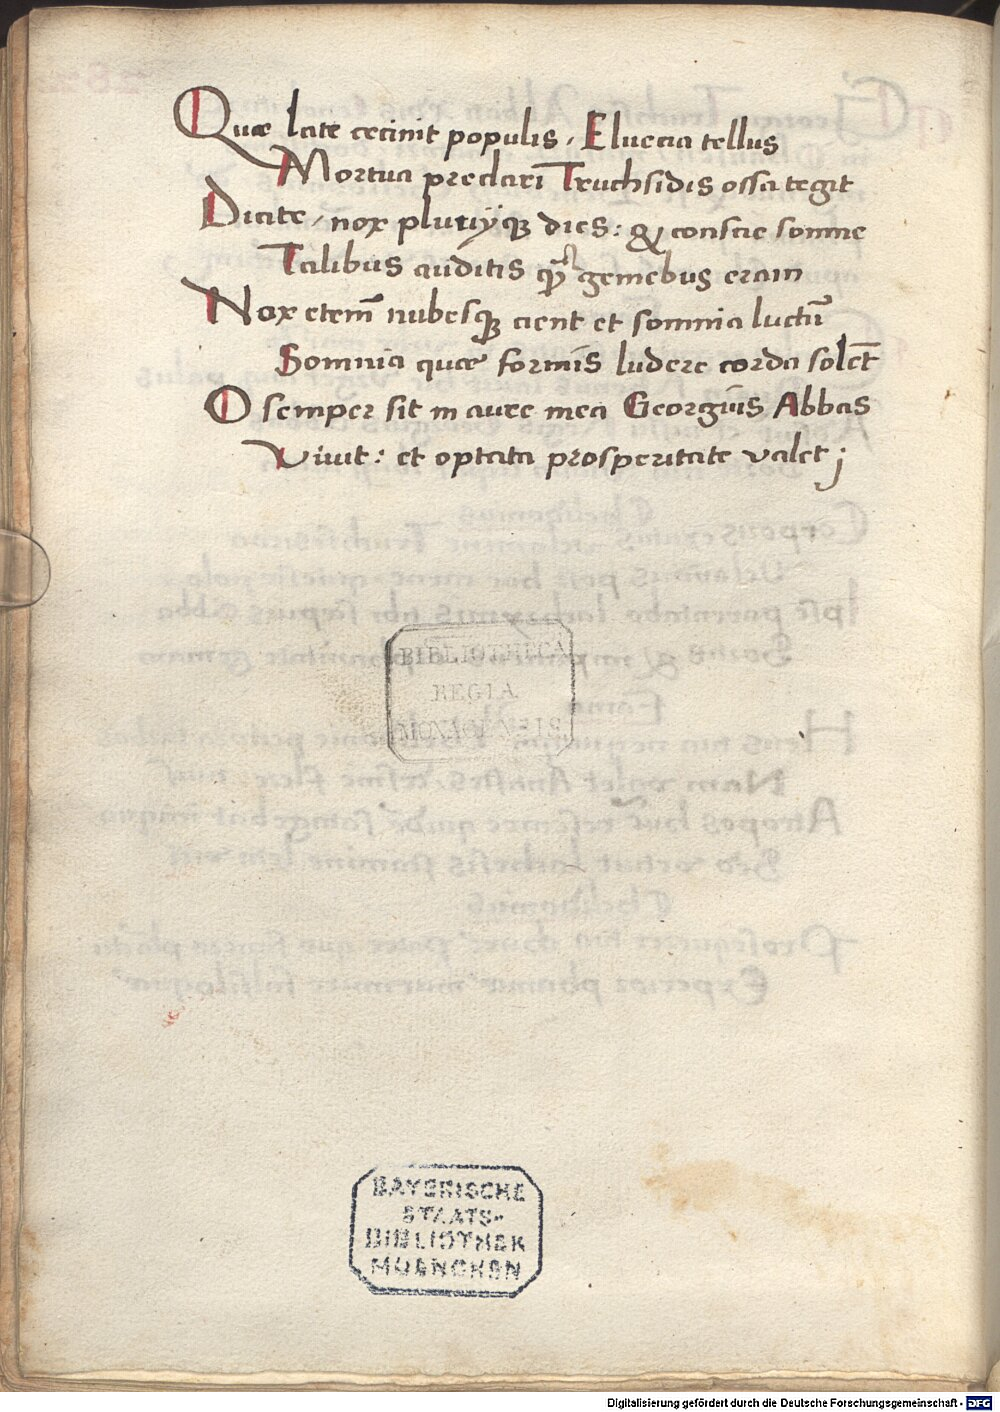 Quæ late cecinit populis, Eluecia tellus
Mortua preclari Truchsidis ossa tegit
Dicite, nox pluriꝫ dies: & conscie somne
Talibus auditis gemebus eram
Nox etem̄ nubesqꝫ cient et somnia luctū
Somnia quæ formis ludere corda solēt
O semper sit in aure mea Georgius Abbas
Viuit: et optata prosperitate valet;
BIBLIOTHECA
REGIA
MONACENSIS
BAYERISCHE
STAATS-
BIBLIOTHEK
MUENCHEN
Digitalisierung gefördert durch die Deutsche Forschungsgemeinschaft - DFG